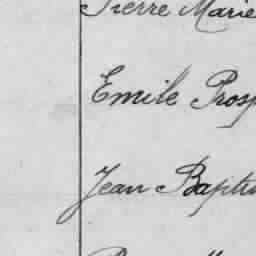 Pierre Marie
Emile Prosp
Jean Baptis